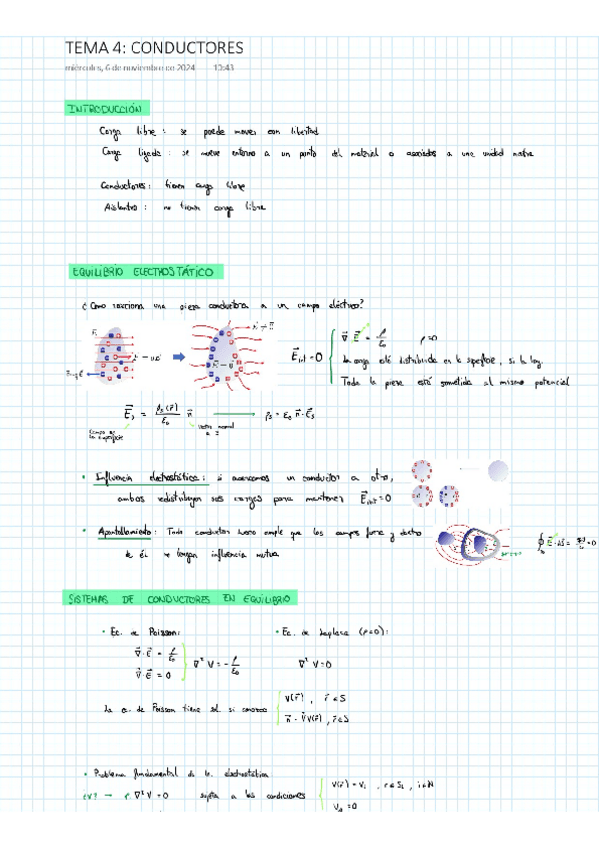 TEMA 4: CONDUCTORES
miércoles, 6 de noviembre de 2024 10:43
INTRODUCCIÓN
Carga libre: se puede mover con libertad
Carga ligada: se mueve entorno a un punto del material o asociados a una unidad
Conductores: tienen carga libre
Aislantes: no tienen carga libre
EQUILIBRIO ELECTROSTÁTICO
¿Como reacciona una pieza conductora a un campo eléctrico?
E⃗int = 0
∇⃗ E⃗ = ρ/ε₀ ρ=0
La carga esté distribuida en la superficie, si la hay.
Toda la pieza está sometida al mismo potencial
E⃗s = ρs(r⃗)/ε₀ n⃗ → ρs = ε₀ n⃗·E⃗s
Campo en la superficie
Vector normal
• Influencia electrostática: si acercamos un conductor a otro,
ambos redistribuyen sus cargas para mantener E⃗int = 0
• Apantallamiento: Todo conductor hueco cumple que los campos fuera y dentro
de él no tengan influencia mutua
SISTEMAS DE CONDUCTORES EN EQUILIBRIO
• Ec. de Poisson: • Ec. de Laplace (ρ=0):
∇⃗·E⃗ = ρ/ε₀
∇²V = -ρ/ε₀ ∇²V=0
La ec. de Poisson tiene sol. si conozco
V(r⃗), r⃗∈S
n⃗·∇⃗V(r⃗), r⃗∈S
• Problema fundamental de la electrostática
¿V? → ∇²V=0 sujeta a las condiciones
V(r⃗) = Vi, r∈Si, i∈N
=0